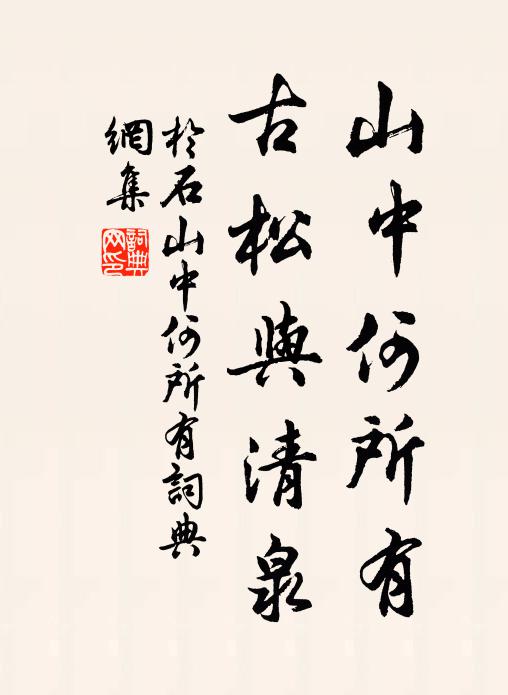 山中何所有
古松與清泉
於石山中何所有詞典
網集
詞典網印